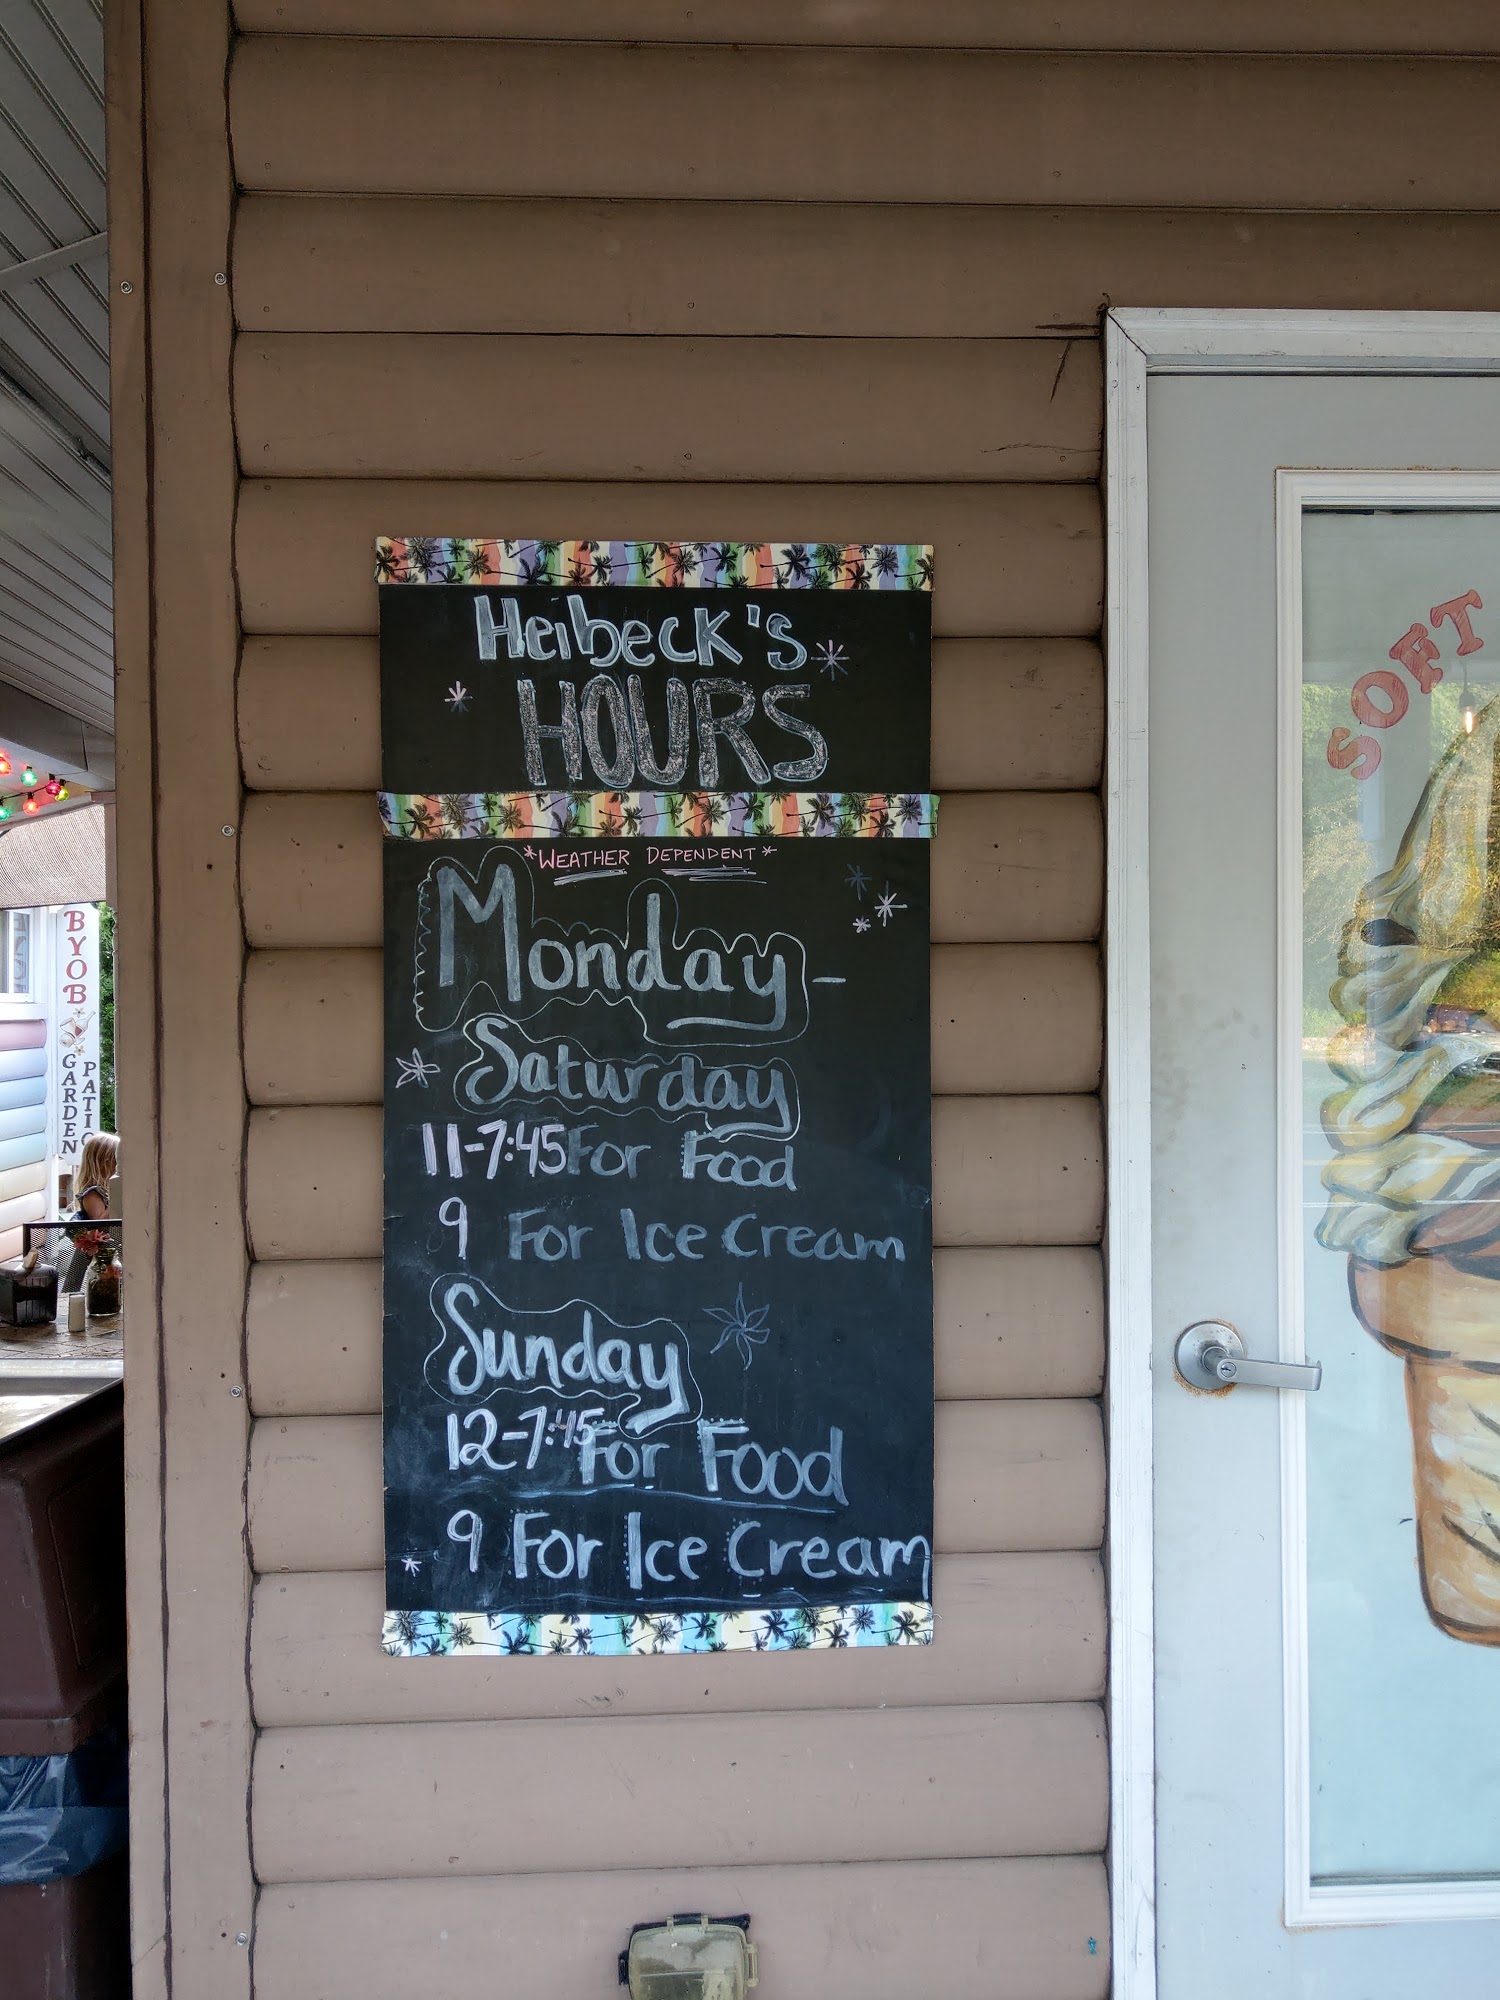 Heibeck's
HOURS
*WEATHER DEPENDENT*
Monday -
Saturday
11-7:45 For Food
9 For Ice Cream
Sunday
12-7:45 For Food
9 For Ice Cream
SOFT
BYOB
GARDEN
PATIO